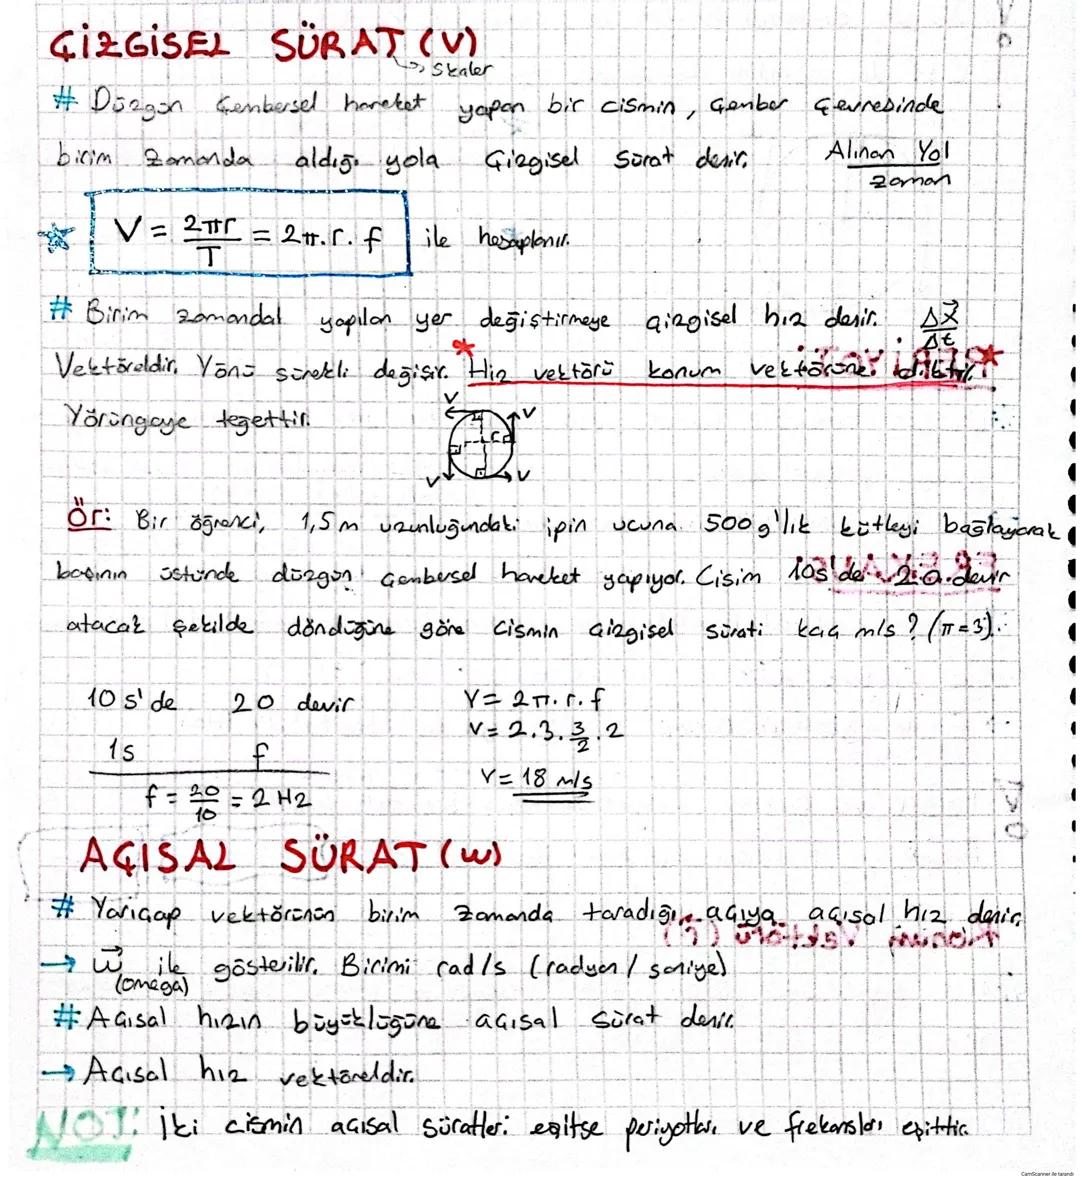 ÇİZGİSEL SÜRAT (V)
↳ Skaler
# Düzgün Çembersel hareket yapan bir cismin, Çember Çevresinde
birim zamanda aldığı yola Çizgisel Sürat denir. Alınan Yol / zaman
V = 2πr / T = 2π.r.f ile hesaplanır.
# Birim zamandal yapılan yer değiştirmeye çizgisel hız denir. Δx⃗ / Δt
Vektöreldir. Yönü sürekli değişir. * Hız vektörü konum vektörüne diktir. *
Yörüngeye teğettir.
V V
r
V V
Ör: Bir öğrenci, 1,5 m uzunluğundaki ipin ucuna 500 g'lık kütleyi bağlayarak
başının üstünde düzgün Çembersel hareket yapıyor. Cisim 10s'de 20 devir
atacak şekilde döndüğüne göre cismin Çizgisel sürati kaç m/s ? (π=3)
10 s'de 20 devir V = 2π.r.f
1s f V = 2.3.3/2.2
f = 20/10 = 2 Hz V = 18 m/s
AÇISAL SÜRAT (w)
# Yarıçap vektörünün birim zamanda taradığı açıya açısal hız denir.
→ w⃗ ile gösterilir. Birimi rad/s (radyan / saniye)
(omega)
# Açısal hızın büyüklüğüne açısal sürat denir.
→ Açısal hız vektöreldir.
NOT: İki cismin açısal süratleri eşitse periyotları ve frekansları eşittir.
CamScanner ile tarandı